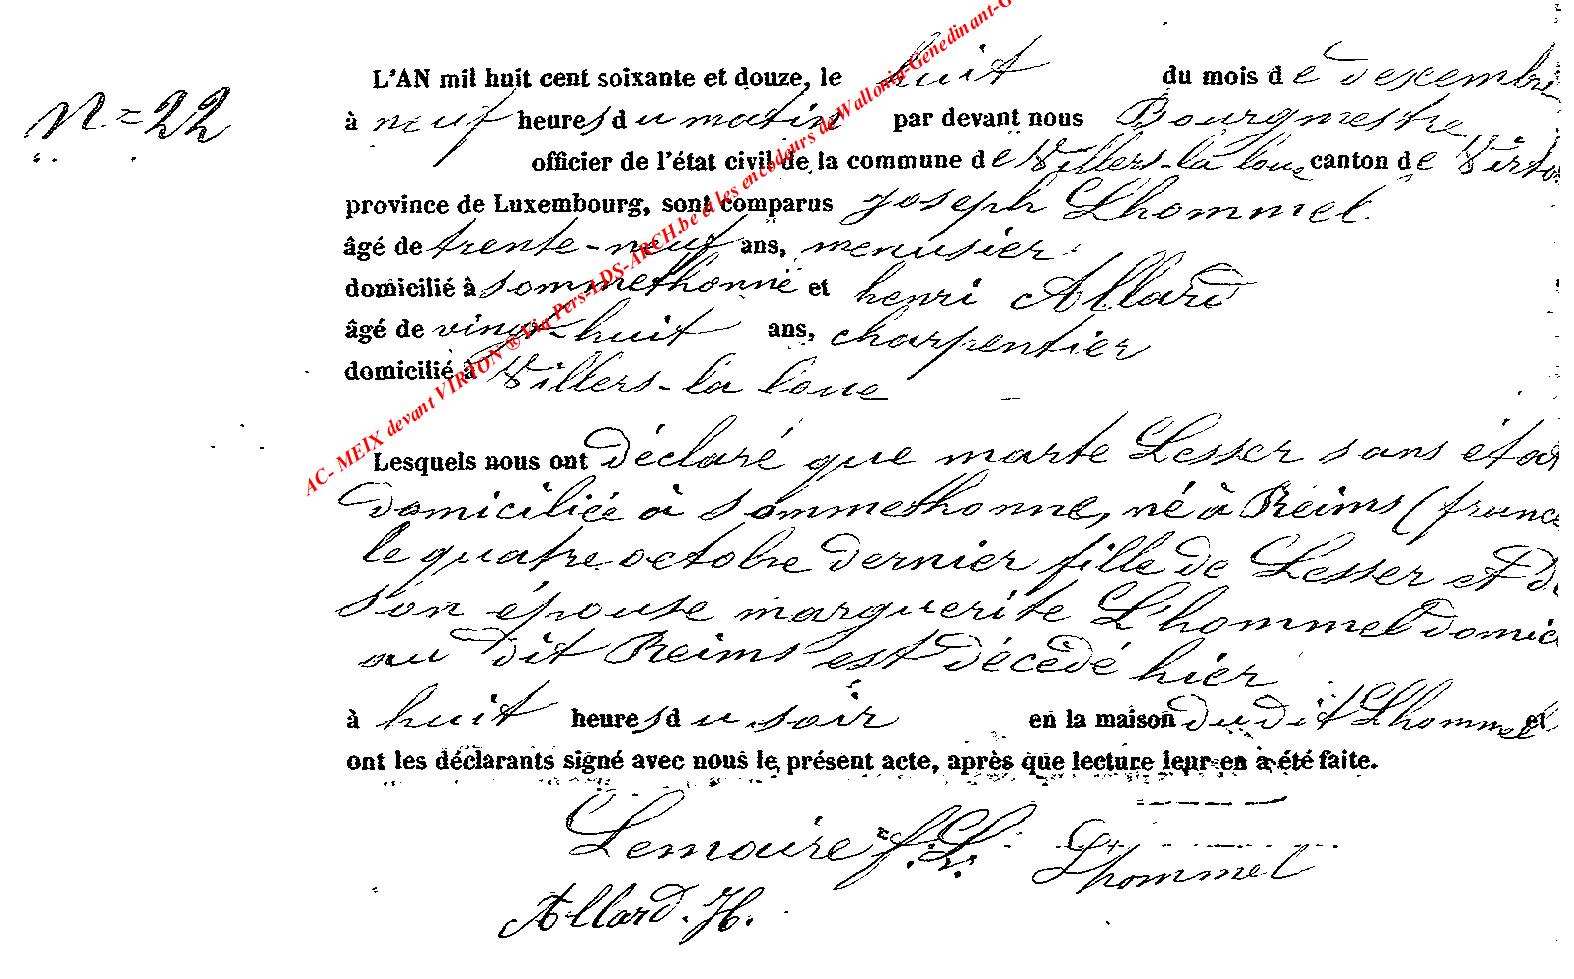 N = 22
L'AN mil huit cent soixante et douze, le huit du mois de décembre
à neuf heures du matin par devant nous Bourgmestre,
officier de l'état civil de la commune de Villers-la loue canton de Virto
province de Luxembourg, sont comparus Joseph Lhommel.
âgé de trente-neuf ans, menusier
domicilié à sommethonne et henri Allard
âgé de vingt-huit ans, charpentier
domicilié à Villers-la loue
Lesquels nous ont déclaré que marte Lesser sans état
domiciliée à Sommethonne, né à Reims (france
le quatre octobre dernier fille de Lesser et de
son épouse marguerite L'hommel domic
au dit Reims est décédé hier
à huit heures du soir en la maison du dit Lhommel et
ont les déclarants signé avec nous le présent acte, après que lecture leur en a été faite.
Lemaire f. L. Lhommel
Allard. H.
AC- MEIX devant VIRTON ® Via Pers-LDS-ARCH.be et les encodeurs de Wallonia-Genedinant-G